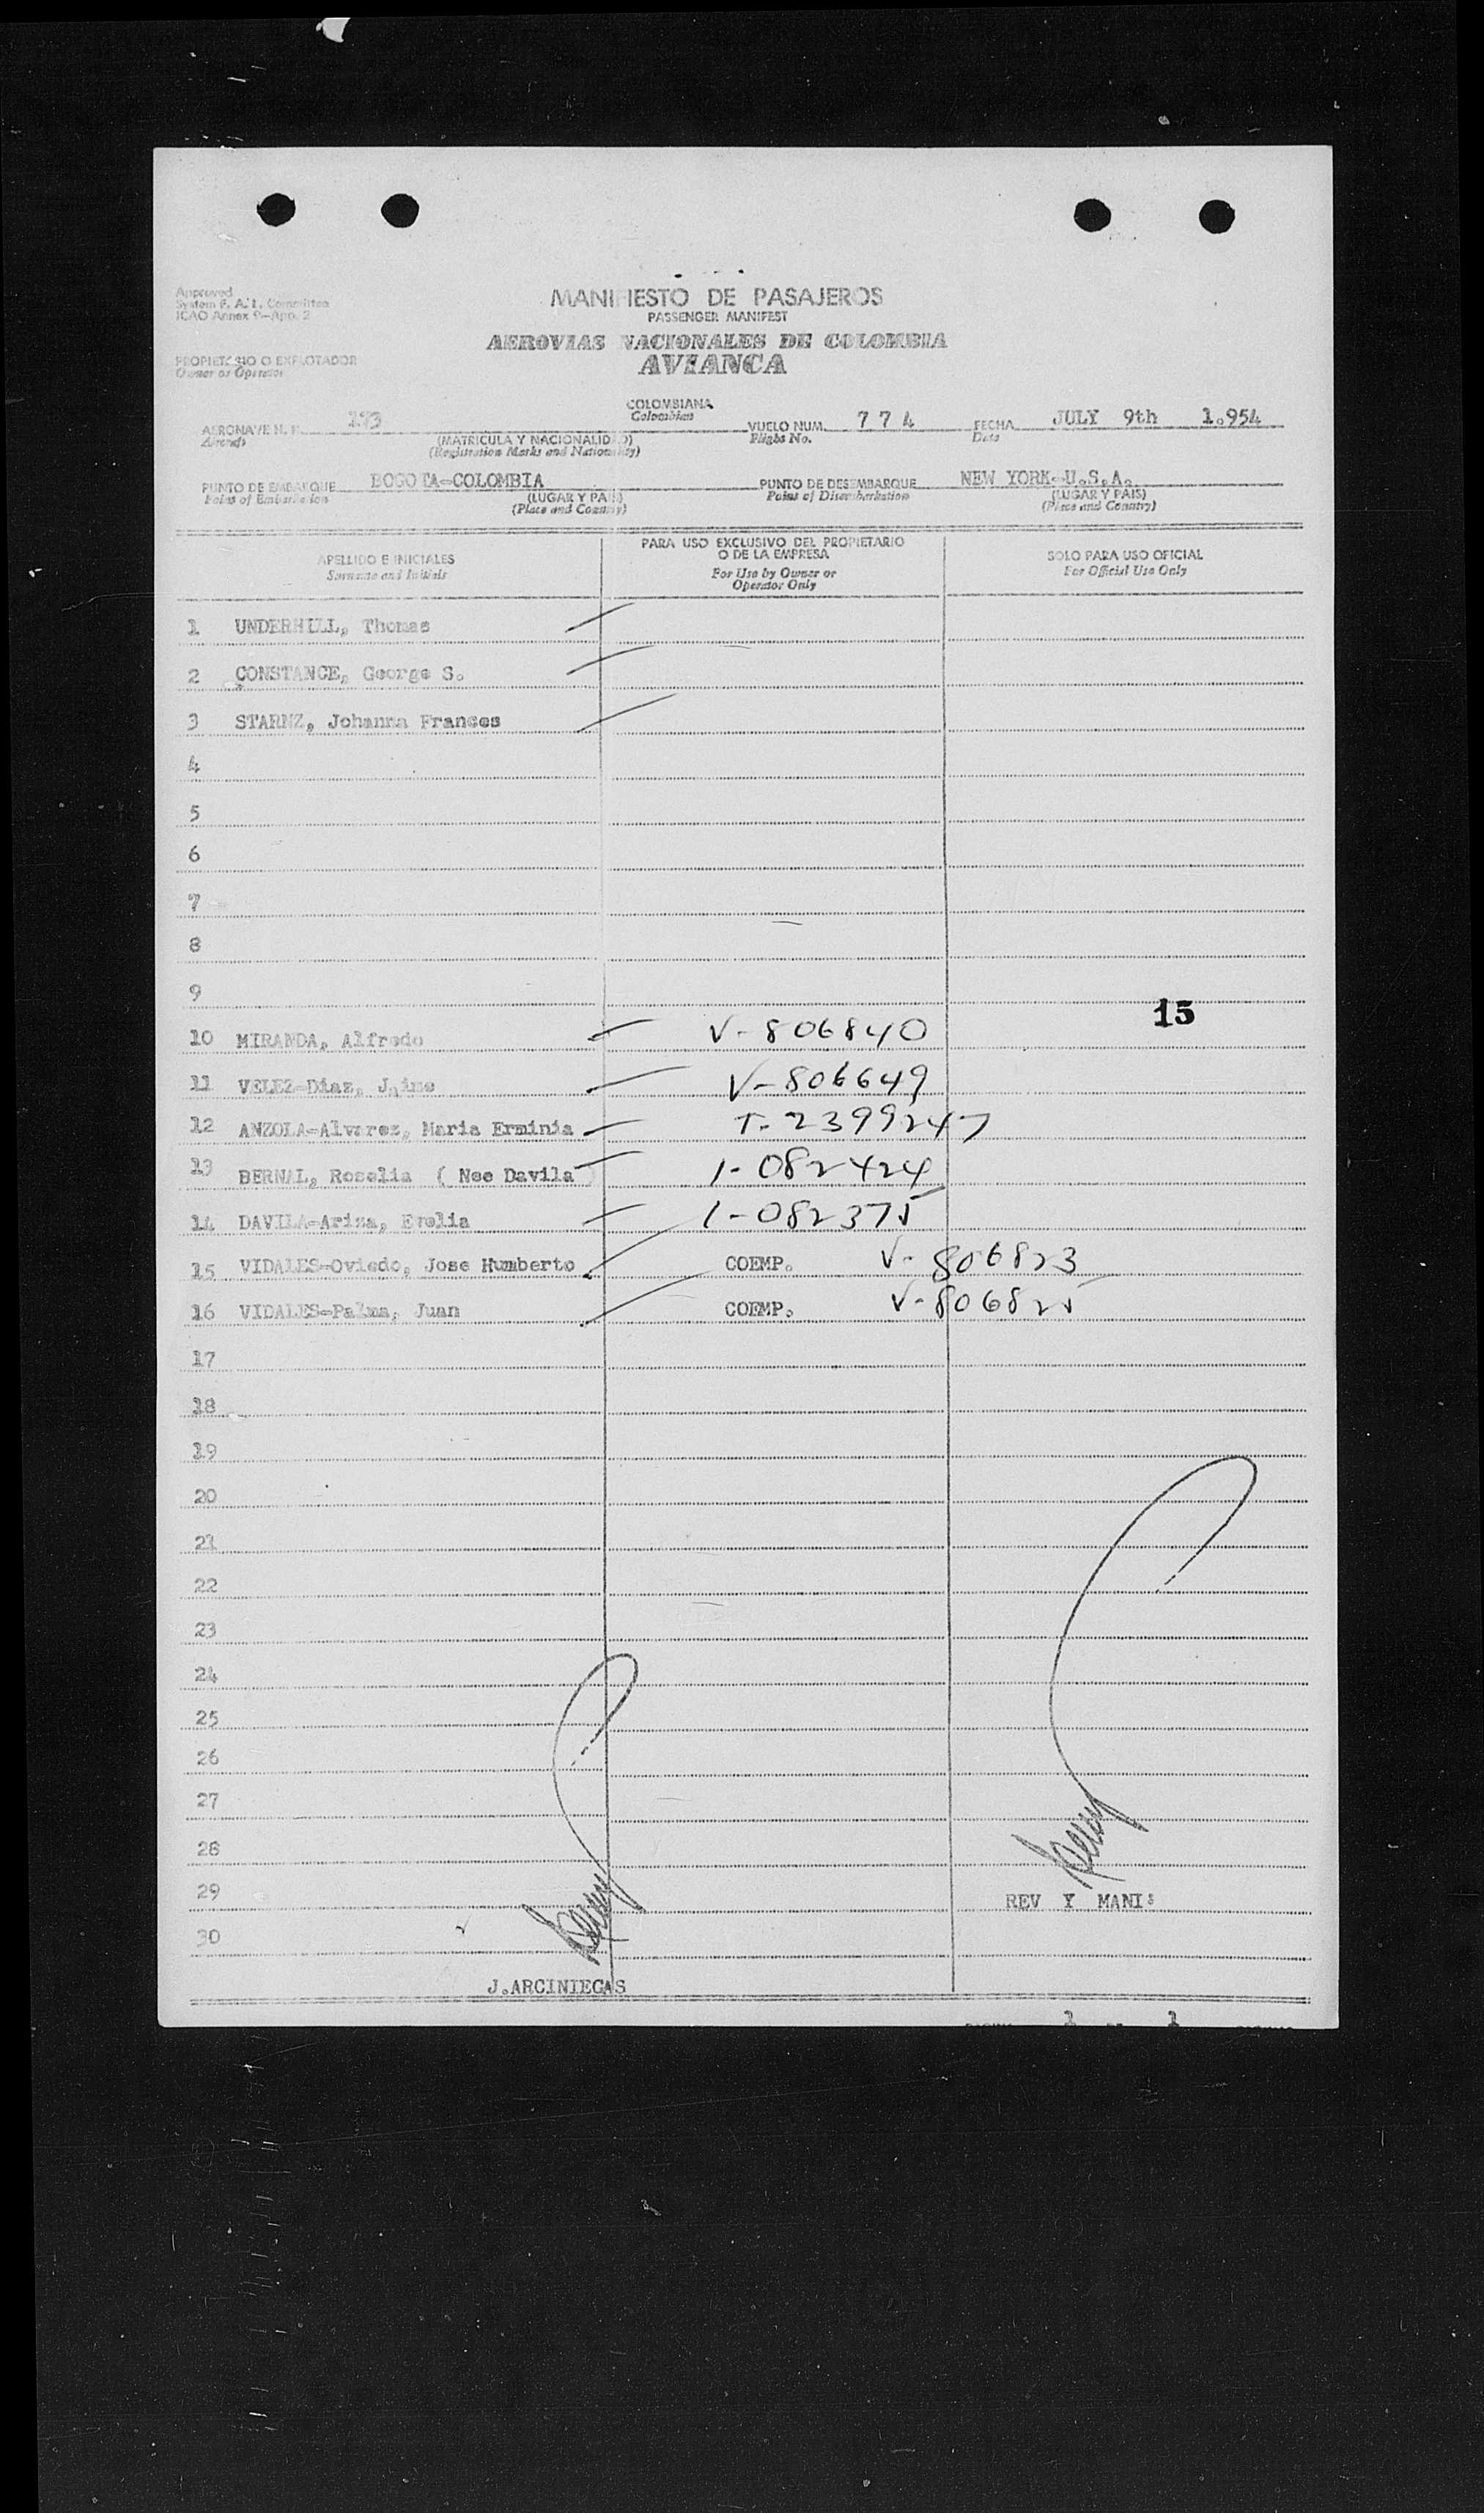 Approved
System F. A. L. Committee
ICAO Annex 9—App. 2
MANIFIESTO DE PASAJEROS
PASSENGER MANIFEST
AEROVIAS NACIONALES DE COLOMBIA
AVIANCA
PROPIETARIO O EXPLOTADOR
Owner or Operator
COLOMBIANA
Colombian
AERONAVE N. P. 173 VUELO NUM. 7 7 4 FECHA JULY 9th 1.954
Aircraft (MATRICULA Y NACIONALIDAD) Flight No. Date
(Registration Marks and Nationality)
PUNTO DE EMBARQUE BOGOTA-COLOMBIA PUNTO DE DESEMBARQUE NEW YORK-U.S.A.
Point of Embarkation (LUGAR Y PAIS) Point of Disembarkation (LUGAR Y PAIS)
(Place and Country) (Place and Country)
APELLIDO E INICIALES
Surname and Initials
PARA USO EXCLUSIVO DEL PROPIETARIO
O DE LA EMPRESA
For Use by Owner or
Operator Only
SOLO PARA USO OFICIAL
For Official Use Only
1 UNDERHILL, Thomas
2 CONSTANCE, George S.
3 STARNZ, Johanna Frances
4
5
6
7
8
9
15
10 MIRANDA, Alfredo V-806840
11 VELEZ-Diaz, Jaime V-806649
12 ANZOLA-Alvarez, Maria Erminia T-2399247
13 BERNAL, Roselia ( Nee Davila ) 1-082424
14 DAVILA-Ariza, Evelia 1-082375
15 VIDALES-Oviedo, Jose Humberto COEMP. V-806823
16 VIDALES-Palma, Juan COEMP. V-806825
17
18
19
20
21
22
23
24
25
26
27
28
29 REV Y MANI:
30
J.ARCINIEGAS
1 1